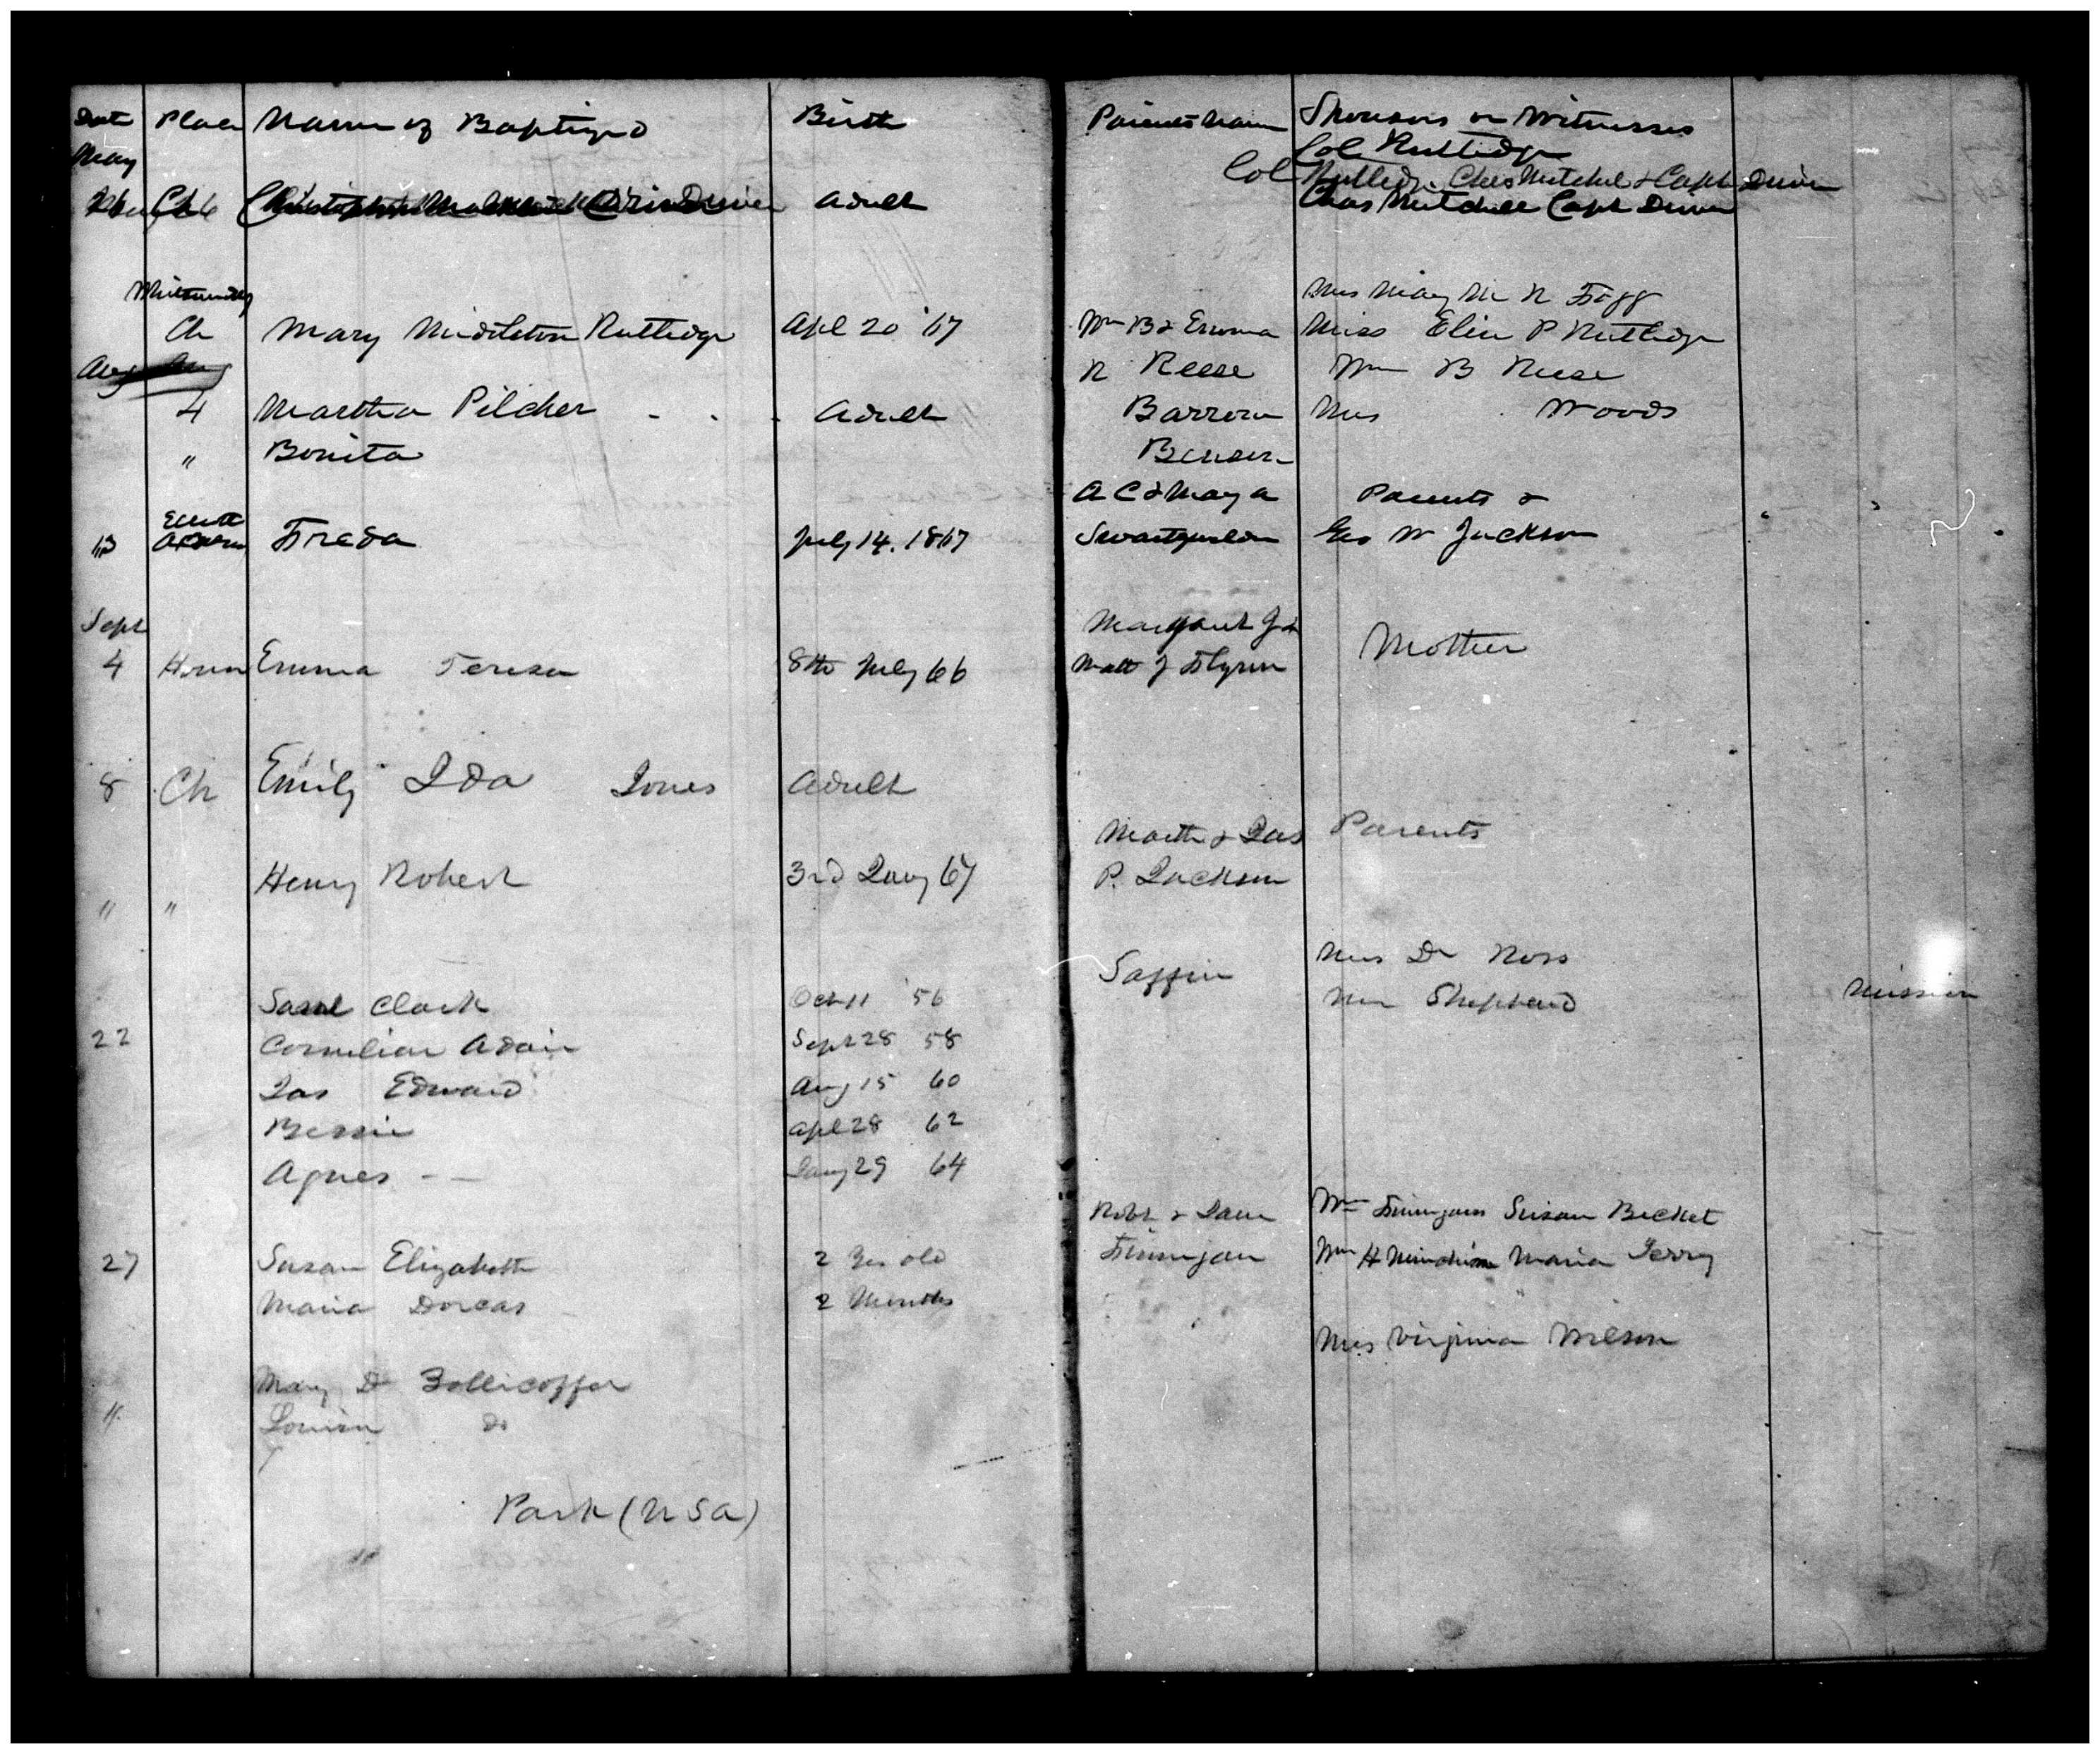 Date Place Name of Baptized Birth Parents Name Sponsors or Witnesses
May Col Rutledge
Col Rutledge Chas Mitchel & Capt Driver
26 Ch Adult Chas Mitchell Capt Driver
Whitsunday Mrs Mary M R Fogg
Ch Mary Middleton Rutledge Apl 20 '67 Wm B & Emma Miss Eliza P Rutledge
Aug R Reese Wm B Reese
4 Martha Pilcher - . . Adult Barrow Mrs Woods
" Bonita
A C & Mary A Parents &
13 Freda July 14. 1867 Geo W Jackson
Sept Margaret J &
4 Home Emma Teresa 8th July 66 Matt J Flynn Mother
8 Ch Emily Ida Jones Adult
Marth & Jas Parents
" " Henry Robert 3rd Jany 67 P. Jackson
Saffin Mrs Dr Ross
Saml Clark Oct 11 '56 Shepherd Mission
22 Cornelian Adair Sept 28 58
Jas Edward Aug 15 60
Bessie Apl 28 62
Agnes - - Jany 29 64
Robt & Jane Wm Finnigan Susan Becket
27 Susan Elizabeth 2 Yrs old Finnigan Wm H Maria Terry
Maria Dorcas 2 Months
Mrs Virginia Wilson
Mary D Zollicoffer
" Louisa do
Park (USA)
"